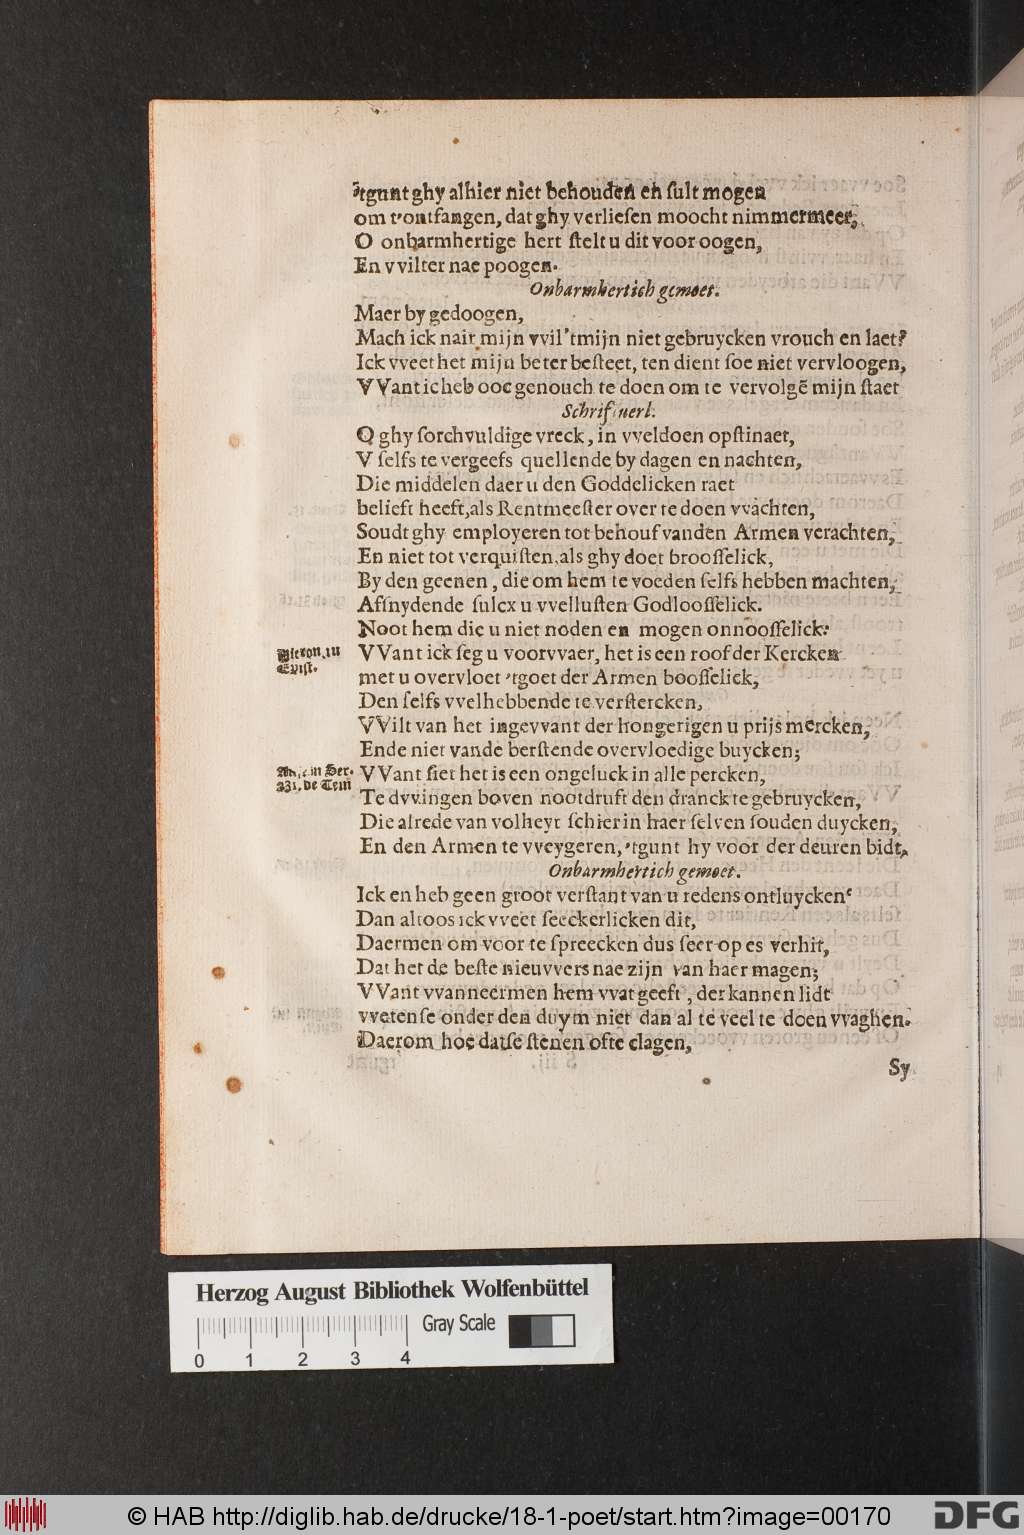 'tgunt ghy alhier niet behouden en sult mogen
om t'ontfangen, dat ghy verliesen moocht nimmermeer,
O onbarmhertige hert stelt u dit voor oogen,
En vvilter nae poogen.
Onbarmhertich gemoet.
Maer by gedoogen,
Mach ick nair mijn vvil 'tmijn niet gebruycken vrouch en laet?
Ick vveet het mijn beter besteet, ten dient soe niet vervloogen,
VVant ic heb ooc genouch te doen om te vervolgẽ mijn staet
Schrif uerl.
O ghy sorchvuldige vreck, in vveldoen opstinaet,
V selfs te vergeefs quellende by dagen en nachten,
Die middelen daer u den Goddelicken raet
belieft heeft, als Rentmeester over te doen vvachten,
Soudt ghy employeren tot behouf vanden Armen verachten,
En niet tot verquisten, als ghy doet broosselick,
By den geenen, die om hem te voeden selfs hebben machten,
Afsnydende sulcx u vvellusten Godloosselick.
Noot hem die u niet noden en mogen onnoosselick:
Hieron. in VVant ick seg u voorvvaer, het is een roof der Kercken
Epist. met u overvloet 'tgoet der Armen boosselick,
Den selfs vvelhebbende te verstercken,
VVilt van het ingevvant der hongerigen u prijs mercken,
Ende niet vande berstende overvloedige buycken;
in Ser. VVant siet het is een ongeluck in alle percken,
231. de Tem Te dvvingen boven nootdruft den dranck te gebruycken,
Die alrede van volheyt schier in haer selven souden duycken,
En den Armen te vveygeren, 'tgunt hy voor der deuren bidt,
Onbarmhertich gemoet.
Ick en heb geen groot verstant van u redens ontluycken
Dan altoos ick vveet seeckerlicken dit,
Daermen om voor te spreecken dus seer op es verhit,
Dat het de beste nieuvvers nae zijn van haer magen;
VVant vvanneermen hem vvat geeft, der kannen lidt
vvetense onder den duym niet dan al te veel te doen vvaghen.
Daerom hoe datse stenen ofte clagen,
Sy
Herzog August Bibliothek Wolfenbüttel
Gray Scale
0 1 2 3 4
© HAB http://diglib.hab.de/drucke/18-1-poet/start.htm?image=00170
DFG